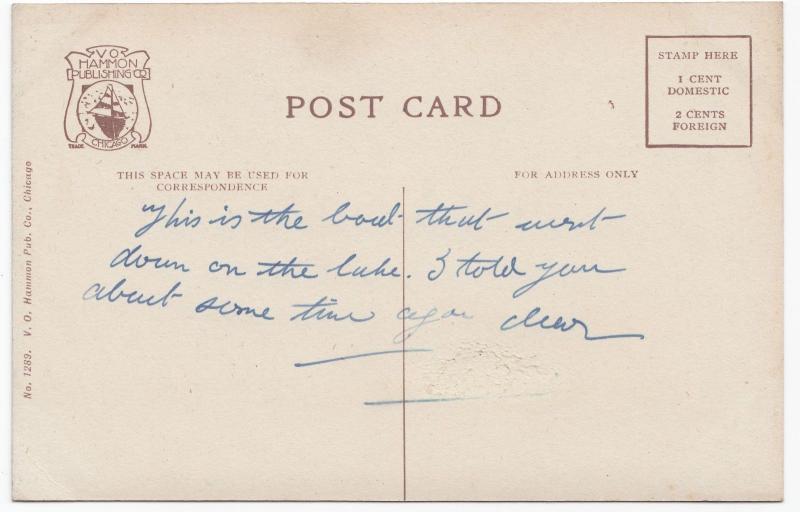 V O
HAMMON
PUBLISHING CO
CHICAGO
TRADE MARK
POST CARD
STAMP HERE
1 CENT
DOMESTIC
2 CENTS
FOREIGN
THIS SPACE MAY BE USED FOR
CORRESPONDENCE
FOR ADDRESS ONLY
This is the boat that went
down on the lake. I told you
about some time ago
No. 1289. V. O. Hammon Pub. Co., Chicago